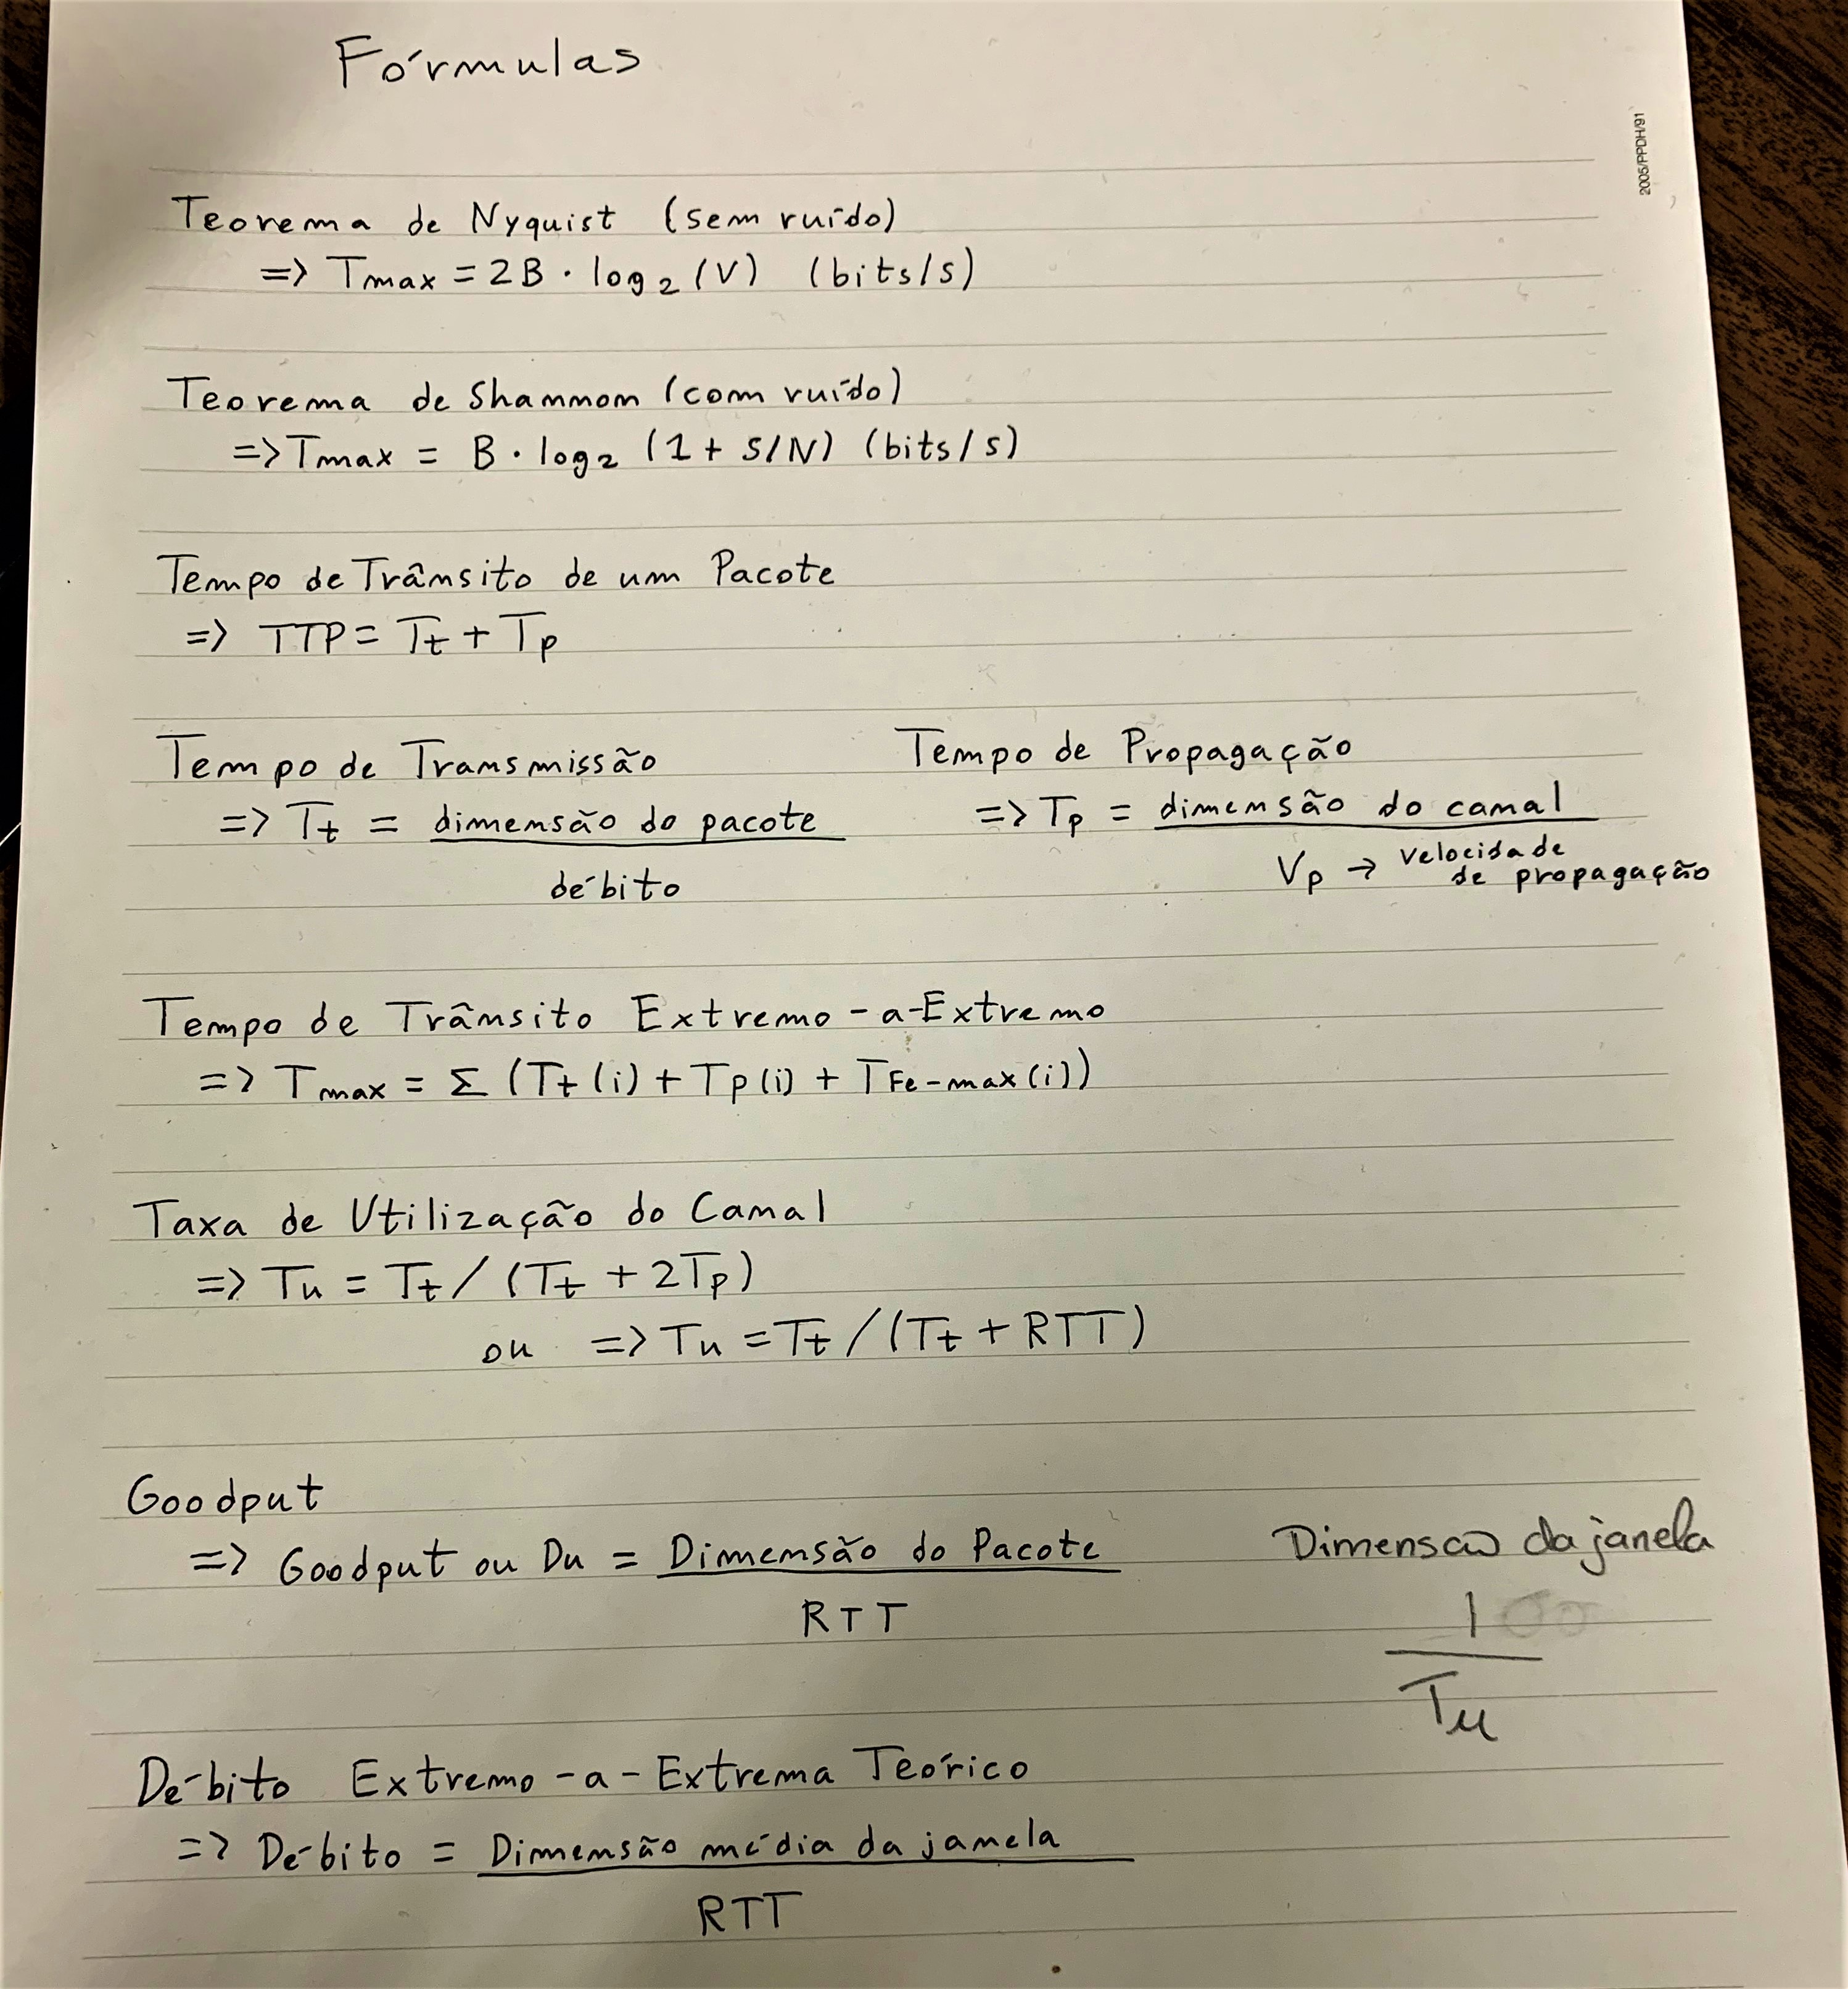 Fórmulas
2005/PPDH/91
Teorema de Nyquist (sem ruído)
=> Tmax = 2B · log₂ (V) (bits/s)
Teorema de Shannon (com ruído)
=> Tmax = B · log₂ (1 + S/N) (bits/s)
Tempo de Trânsito de um Pacote
=> TTP = Tt + Tp
Tempo de Transmissão
=> Tt = dimensão do pacote
débito
Tempo de Propagação
=> Tp = dimensão do canal
Vp → velocidade
de propagação
Tempo de Trânsito Extremo-a-Extremo
=> Tmax = Σ (Tt(i) + Tp(i) + TFe-max(i))
Taxa de Utilização do Canal
=> Tu = Tt / (Tt + 2Tp)
ou => Tu = Tt / (Tt + RTT)
Goodput
=> Goodput ou Du = Dimensão do Pacote
RTT
Dimensão da janela
1
Tu
Débito Extremo-a-Extrema Teórico
=> Débito = Dimensão média da janela
RTT